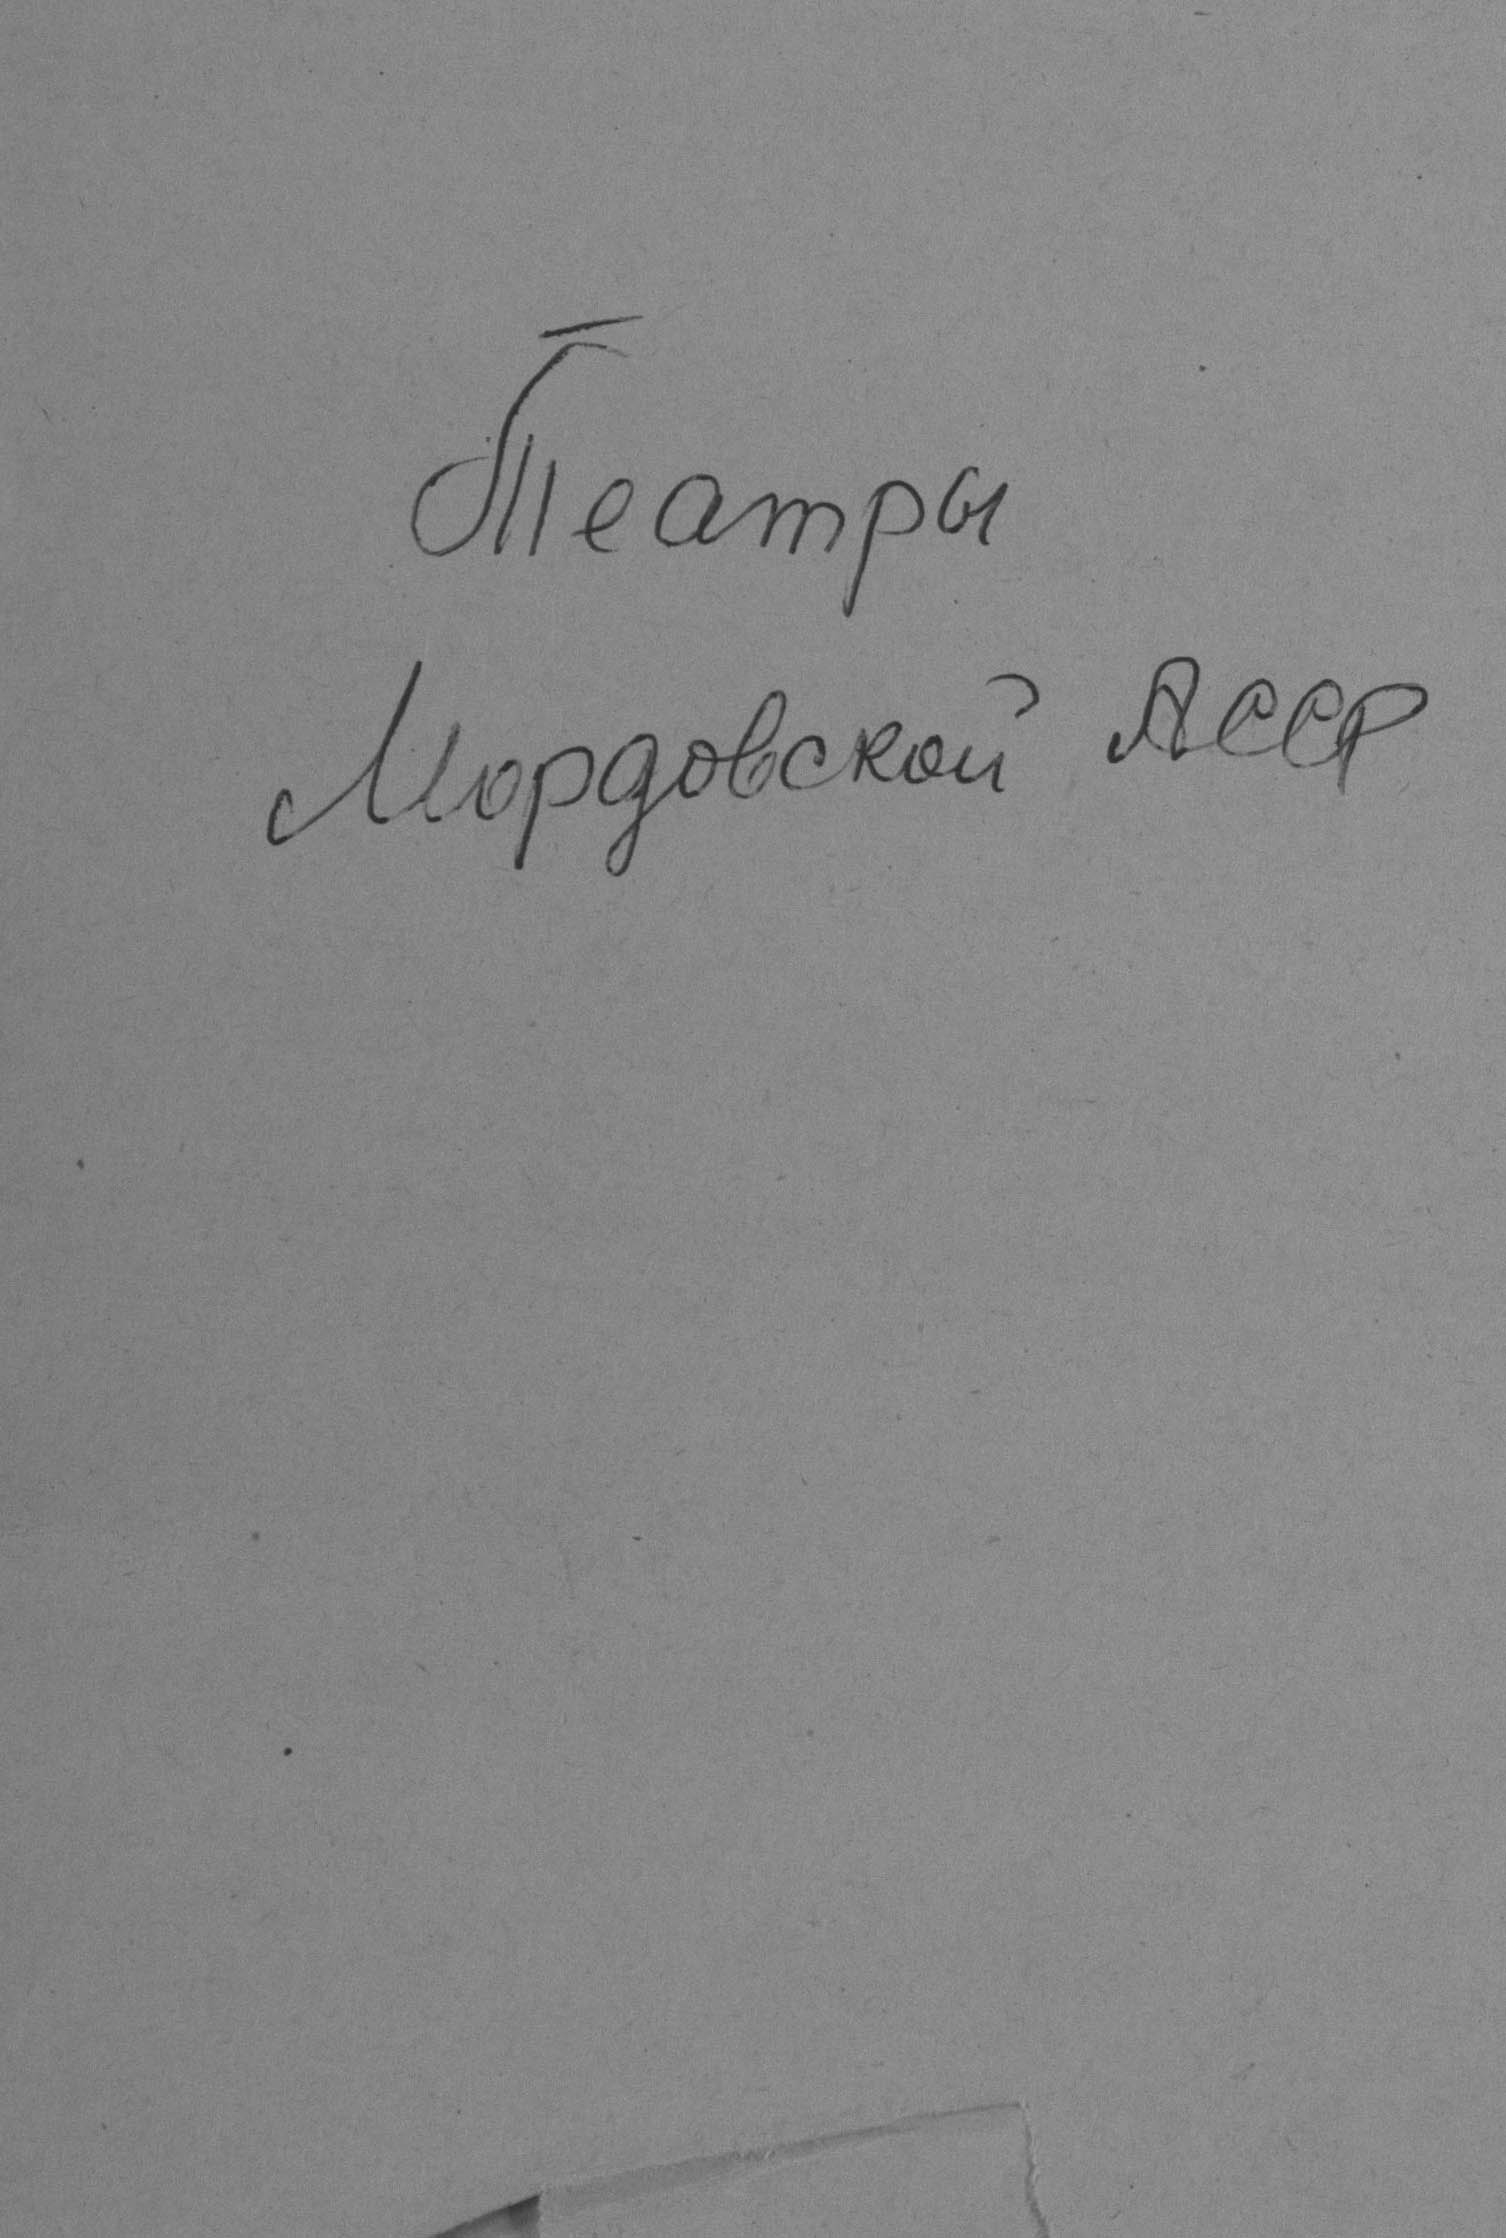 Театры
Мордовской АССР